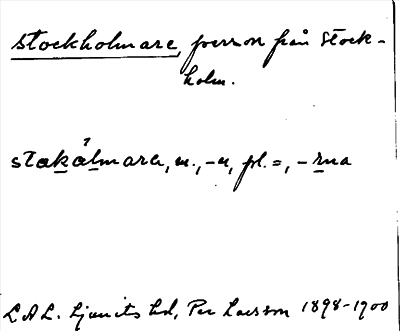 stockholmare, person från Stock-
holm.
stakålmara, m., -n, pl. =, -rna
L.A.L. Ljunits hd, Per Larsson 1898-1900